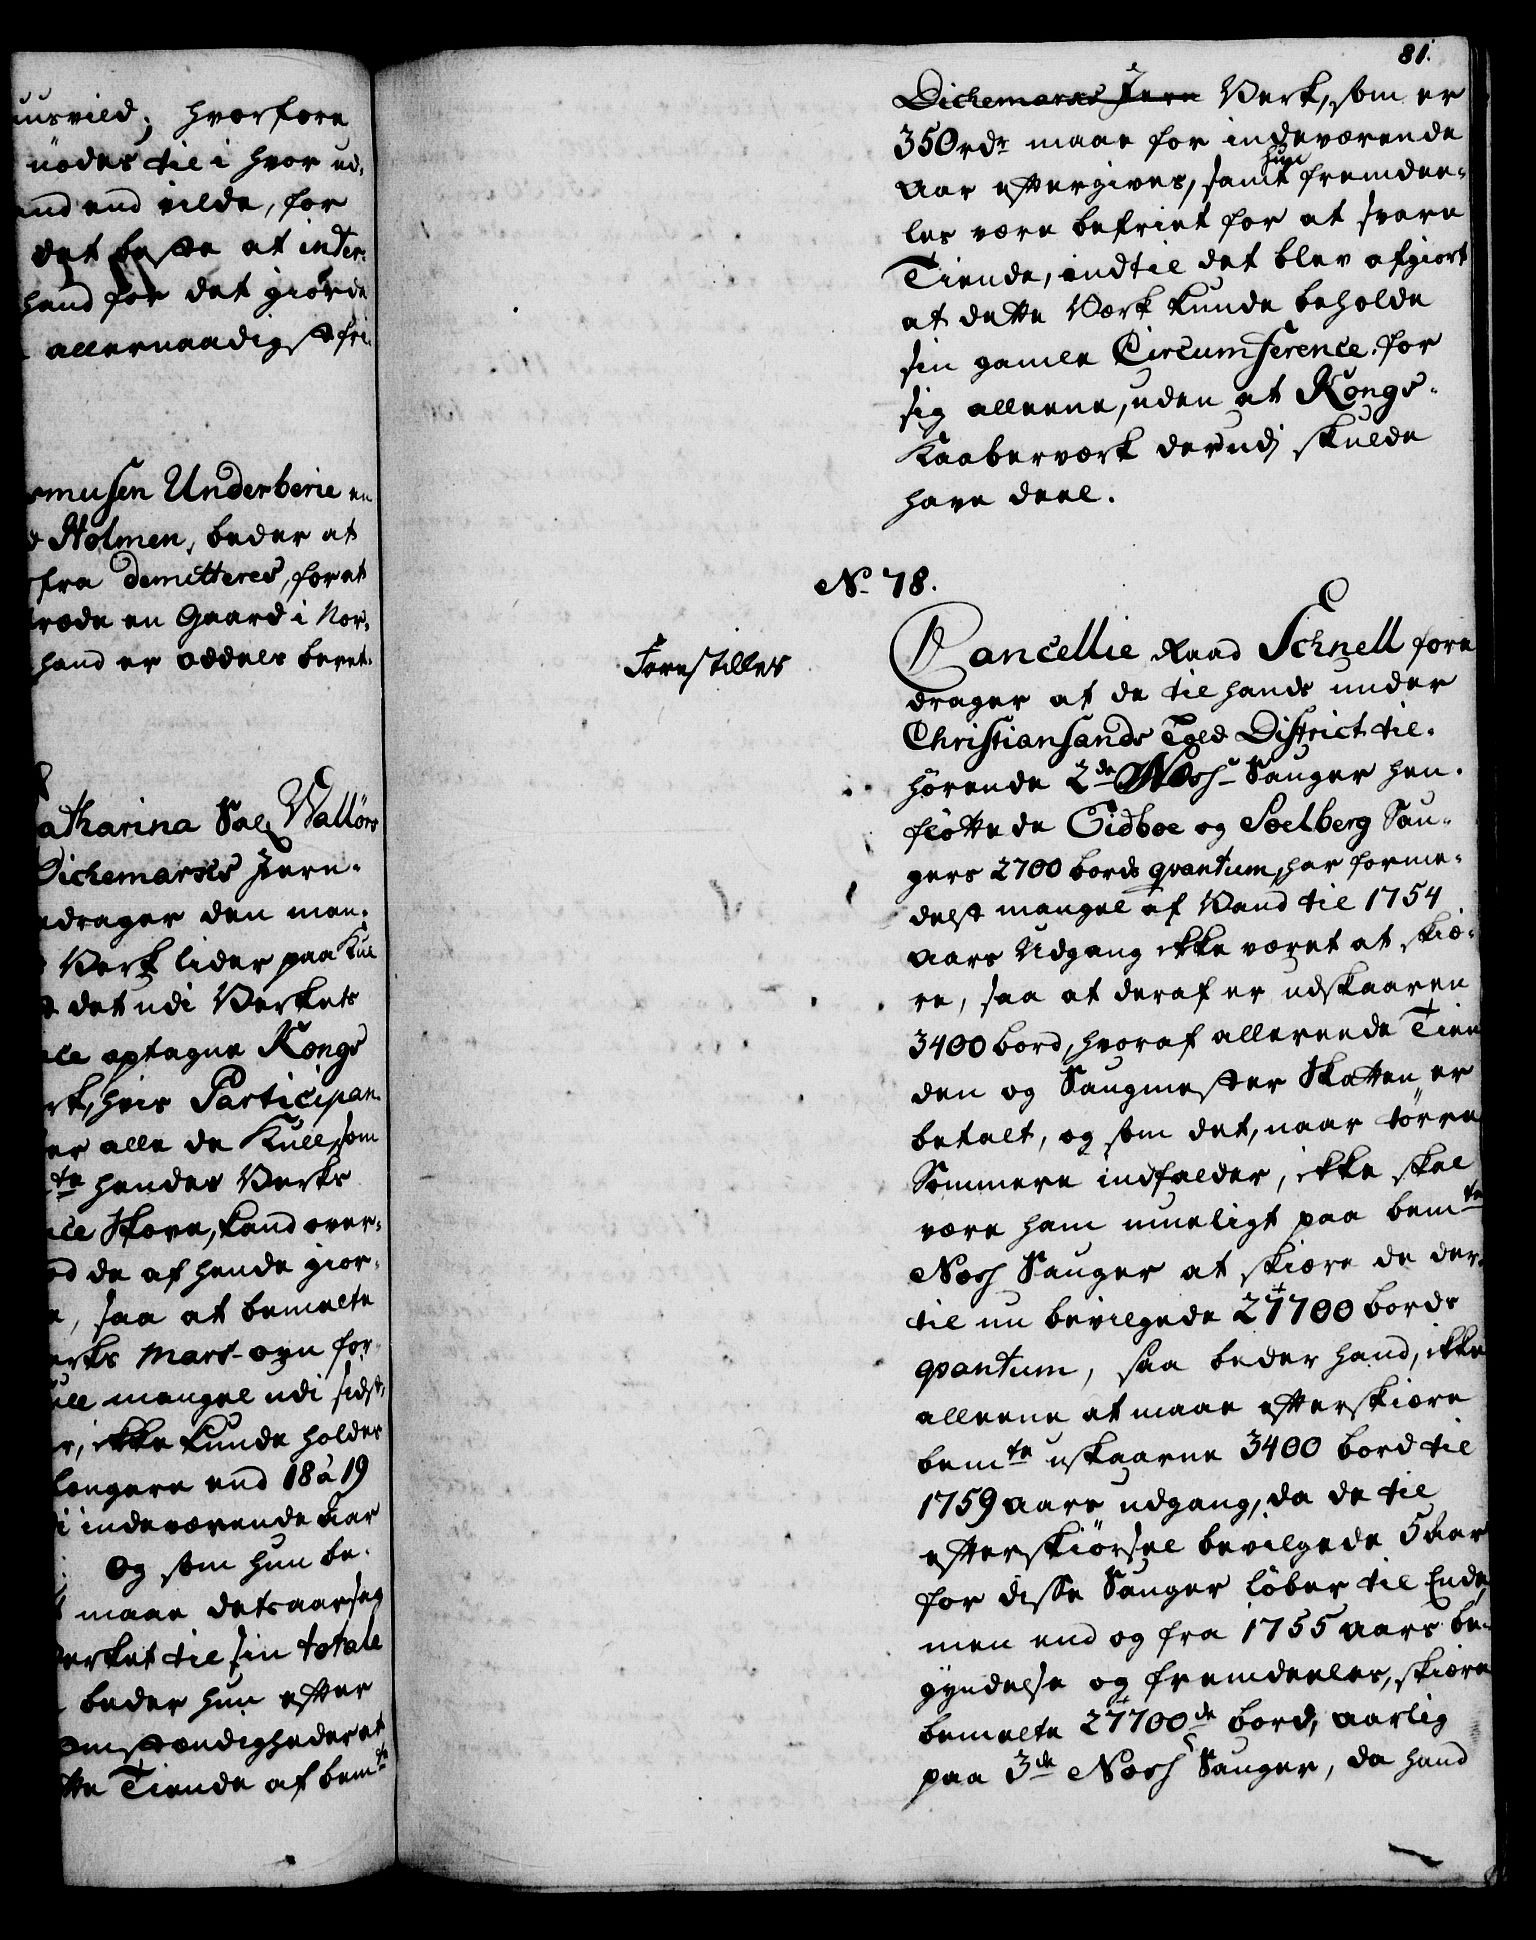 uusvild; hvorfore
nödes til i hvor ud,
end vilde, for
det beste at inter=
hand for det giorde
allernaadigst fri
rmusen Underberie en
Holmen, beder at
fra demitteres, for at
træde en Gaard i Nor,
hand er oddels beret.
atharina Sal. Wallörs
Dichemarks Jern=
drager den man.
Verk lider paa Kul
det udi Verkets
optagne Kongs
rk, hvis Participan
er alle de Kull, som
te hendes Verks
Skove, Land over=
de af hende gior,
saa at bemelte
Mars-ovn for
mangel udi sidst,
r, ikke kunde holdes
længere end 18 à 19
i indeværende Aar
Og som hun be.
maae
Verket til sin totale
beder hun efter
omstændigheder at
Tiende af bemte
81.
Dichemarks Jern Verk, som er
350 rdr maae for indeværende
Aar eftergives, samt hun fremdee=
les være befriet for at svare
Tiende, indtil det blev afgiort
at dette Værk kunde beholde
sin gamle Circumference for
sig alleene, uden at Kongs-
Kaaberværk derudj skulde
have deel.
No 78.
Forestilles
Cancellie Raad Schnell fore
drager at de til hands under
Christiansands Told District til-
hörende 2de Næsj Sauger hen-
flöttede Eidboe og Soelberg Sau-
gers 2700 bords qvantum, har forme-
delst mangel af Vand til 1754
Aars Udgang ikke været at skiæ-
re, saa at deraf er udskaaren
3400 bord, hvoraf allereede Tien
den og Saugmester Skatten er
betalt, og som det, naar törre
Sommere indfalder, ikke skal
være ham mueligt paa bemte
Næsj Sauger at skiære de der-
til nu bevilgede 27700 bords
qvantum, saa beder hand, ikke
alleene at maae efterskiære
bemte uskaarne 3400 bord til
1759 Aars udgang, da de til
efterskiörsel bevilgede 5 Aar
for disse Sauger löber til Ende,
men end og fra 1755 Aars be-
gyndelse og fremdeeles, skiære
bemelte 27700de bord, aarlig
paa 3de Næsj Sauger, da hand